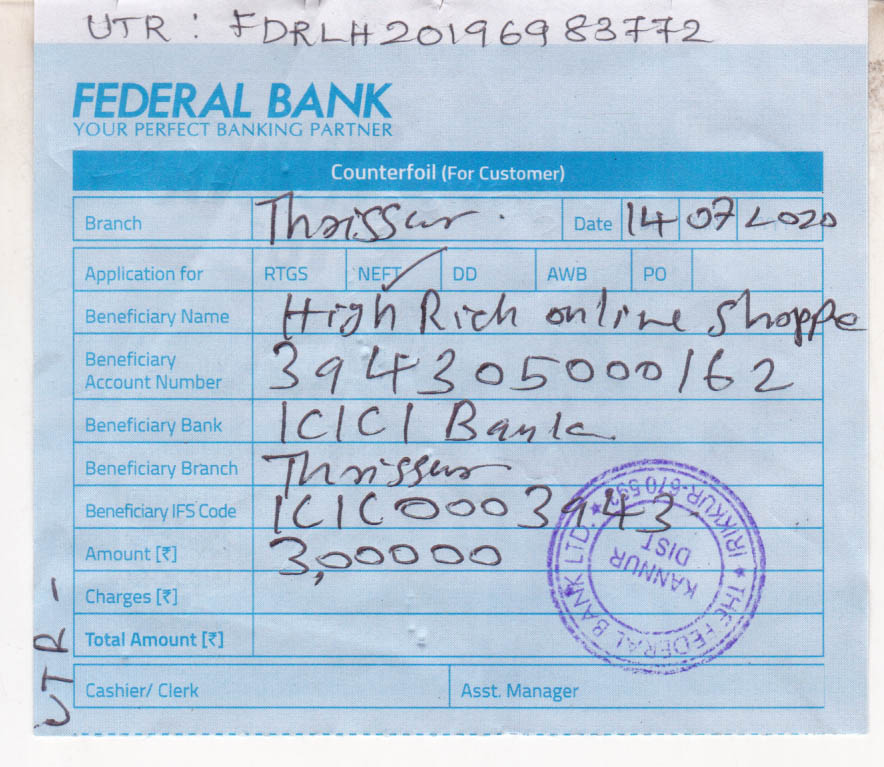 UTR : FDRLH20196983772
FEDERAL BANK
YOUR PERFECT BANKING PARTNER
Counterfoil (For Customer)
Branch Thrissur. Date 14 07 2020
Application for RTGS NEFT ✓ DD AWB PO
Beneficiary Name High Rich online Shoppe
Beneficiary
Account Number 394305000162
Beneficiary Bank ICICI Bank
Beneficiary Branch Thrissur
Beneficiary IFS Code ICIC0003943
Amount [₹] 3,00000
Charges [₹]
Total Amount [₹]
Cashier/ Clerk Asst. Manager
UTR -
★ THE FEDERAL BANK LTD. ★ IRIKKUR-670 593
KANNUR
DIST